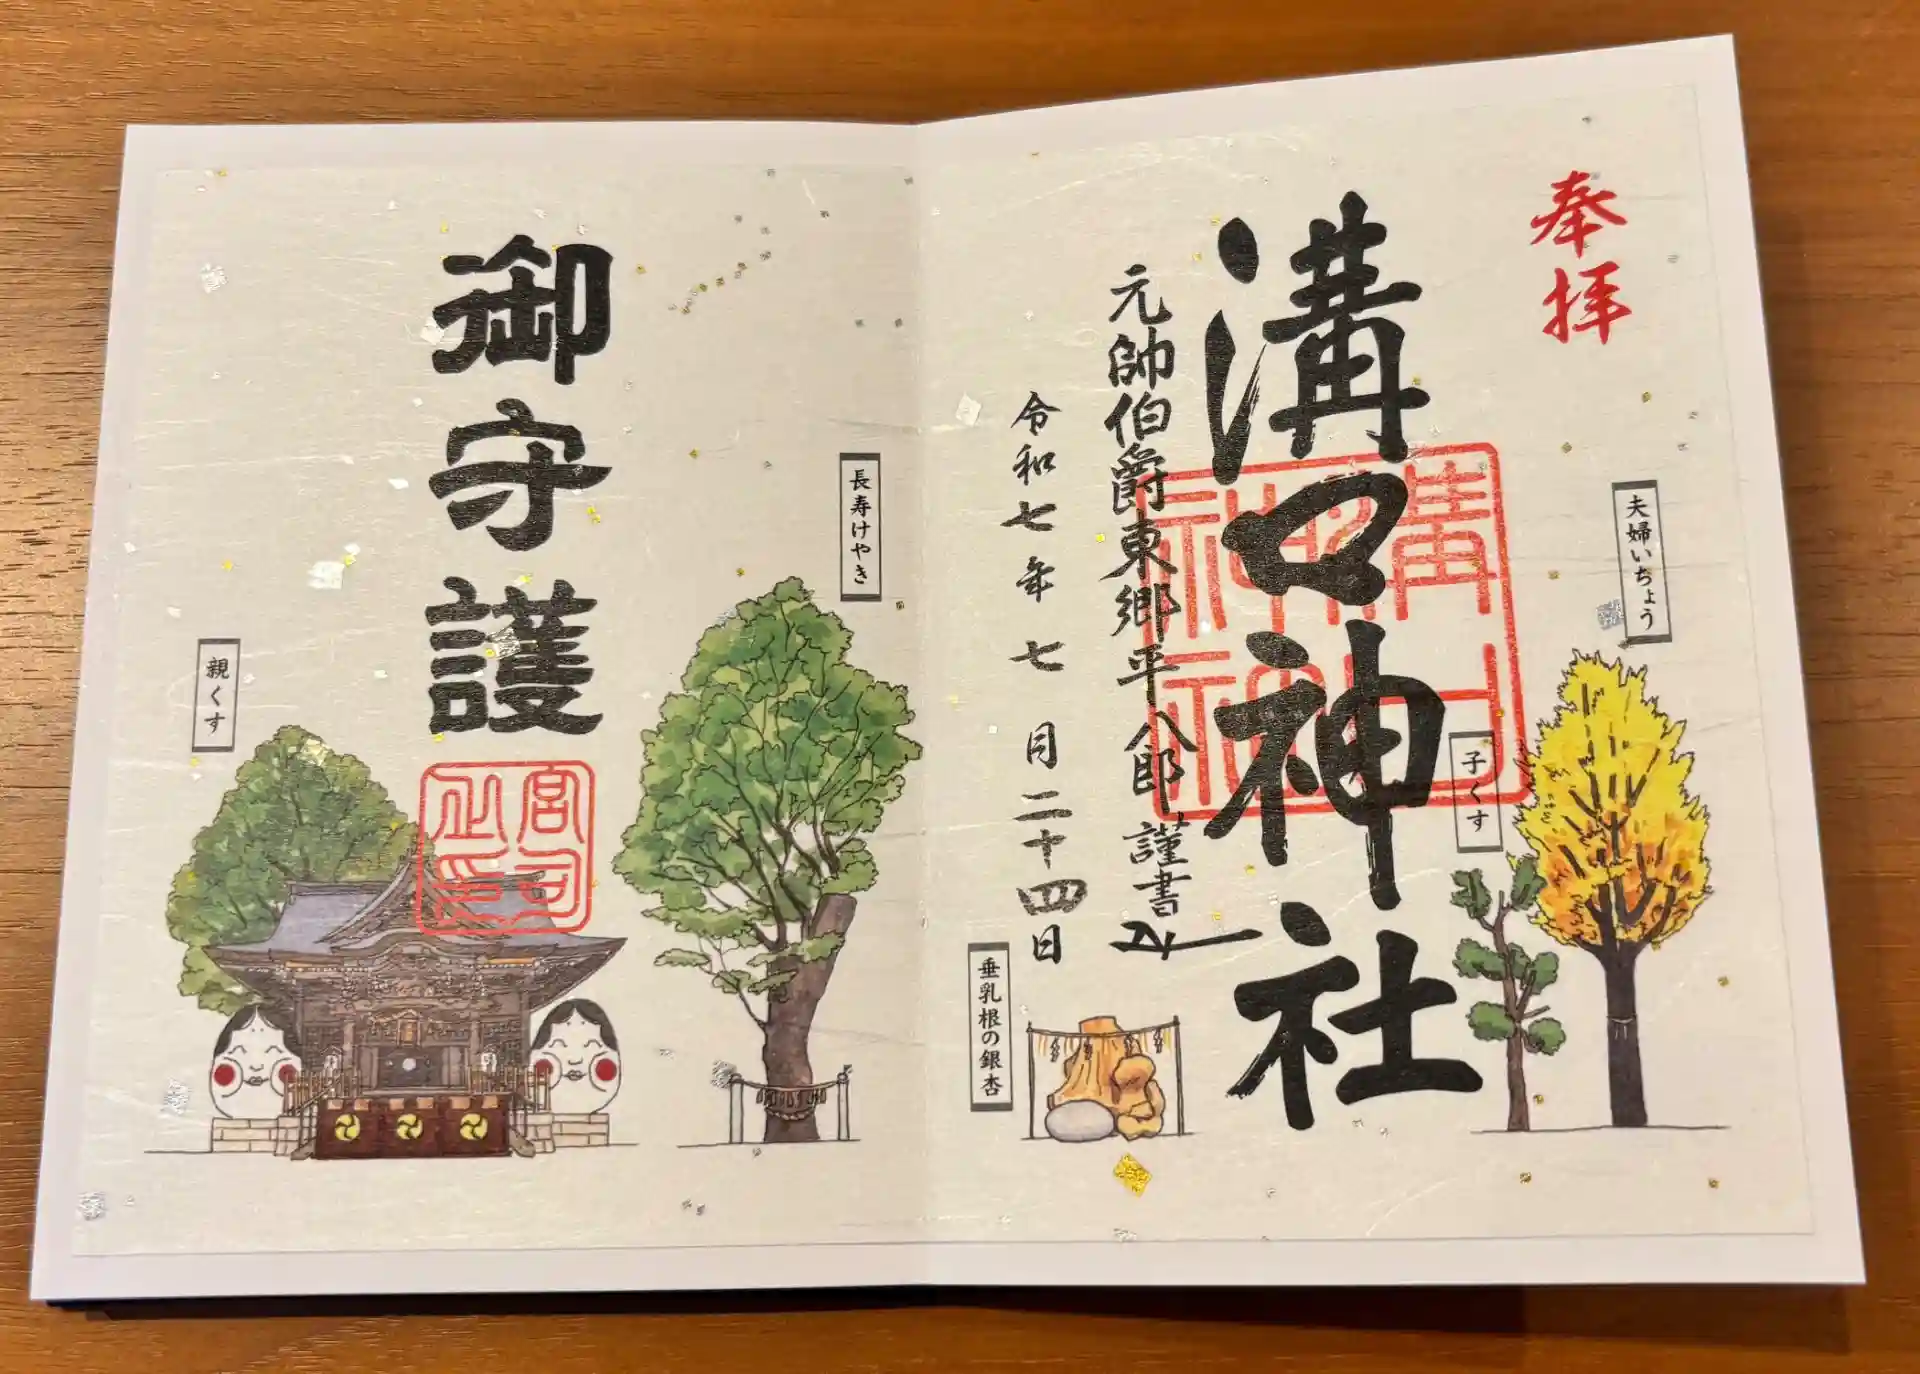 奉拝
夫婦いちょう
子くす
溝口神社
溝口神社
元帥伯爵東郷平八郎謹書
令和七年七月二十四日
垂乳根の銀杏
長寿けやき
御守護
宮司之印
親くす